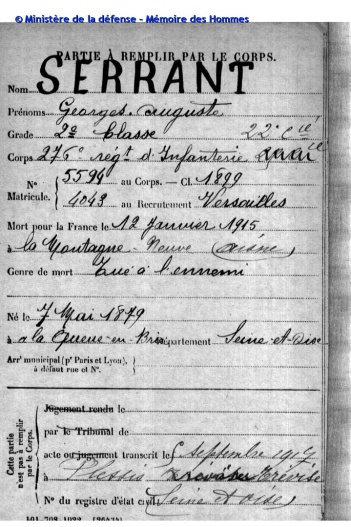 © Ministère de la défense - Mémoire des Hommes
PARTIE À REMPLIR PAR LE CORPS.
Nom SERRANT
Prénoms Georges Auguste
Grade 2e Classe 22e Cie
Corps 276e régt d'Infanterie
N° 5599 au Corps. — Cl. 1899
Matricule. 4043 au Recrutement Versailles
Mort pour la France le 12 Janvier 1915
à la Montagne Neuve (Aisne)
Genre de mort Tué à l'ennemi
Né le 7 Mai 1879
à la Queue-en-Brie Département Seine-et-Oise
Arrt municipal (pr Paris et Lyon),
à défaut rue et N°.
Cette partie n'est pas à remplir par le Corps.
Jugement rendu le
par le Tribunal de
acte ou jugement transcrit le 5 septembre 1917
à Plessis Trévise
N° du registre d'état civil (Seine et Oise)